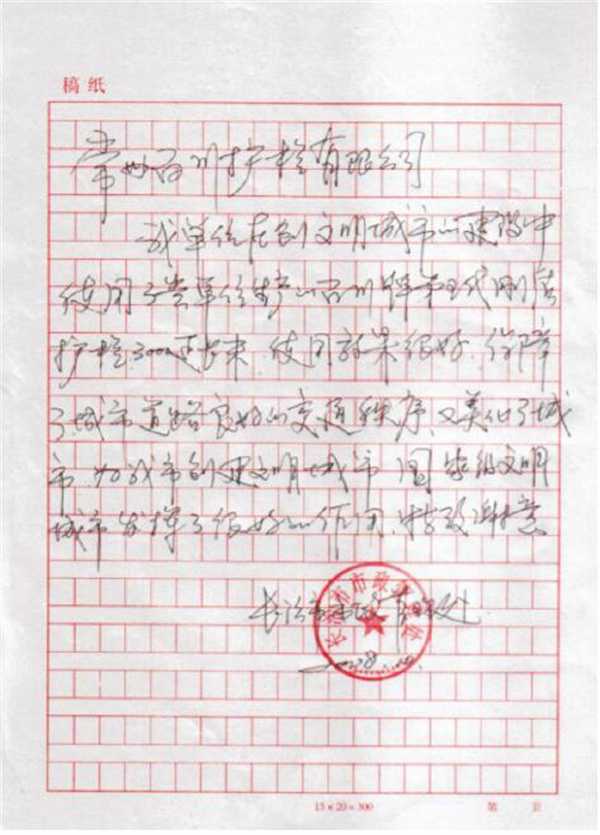 稿纸
常州百川护栏有限公司
我单位在创文明城市的建设中
使用了贵单位生产的百川牌第五代刚
护栏3000延长米 使用效果很好、保障
了城市道路良好的交通秩序、又美化了城
市、为我市创建文明城市 国家级文明
城市发挥了很好的作用、特致谢意
长治市市政管理处
15×20=300
第 页